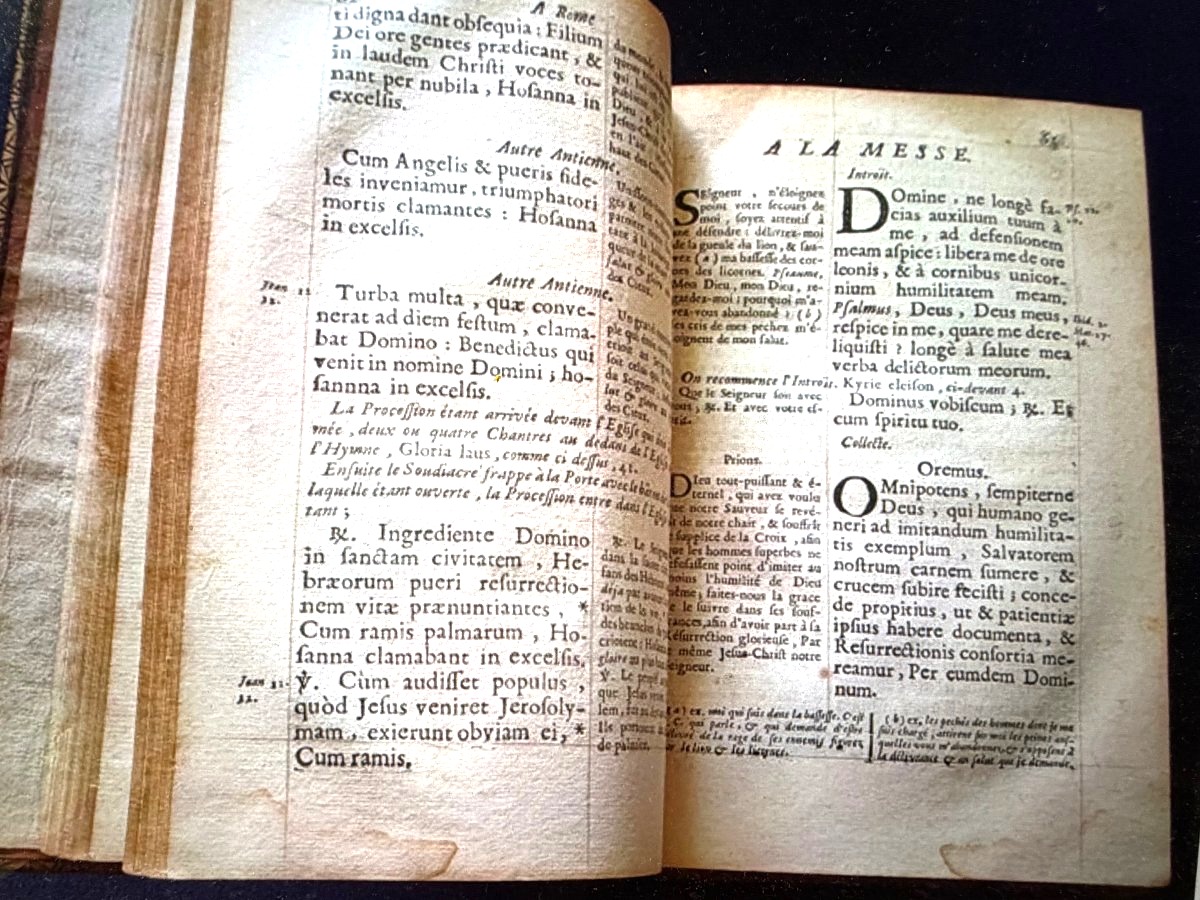 A Rome
ti digna dant obsequia : Filium
Dei ore gentes prædicant , &
in laudem Christi voces to-
nant per nubila , Hosanna in
excelsis.
Autre Antienne.
Cum Angelis & pueris fide-
les inveniamur, triumphatori
mortis clamantes : Hosanna
in excelsis.
Autre Antienne.
Jean 12.
Turba multa , quæ conve-
nerat ad diem festum , clama-
bat Domino : Benedictus qui
venit in nomine Domini ; ho-
sannna in excelsis.
La Procession étant arrivée devant l'Eglise qui
mée , deux ou quatre Chantres au dedans de l'Eglise
l'Hymne , Gloria laus, comme ci dessus , 41.
Ensuite le Soudiacre frappe à la Porte avec le
laquelle étant ouverte , la Procession entre dans l'Eglise
tant ;
℟. Ingrediente Domino
in sanctam civitatem , He-
bræorum pueri resurrectio-
nem vitæ prænuntiantes , *
Cum ramis palmarum , Ho-
sanna clamabant in excelsis.
Jean 12.
℣. Cùm audisset populus ,
quòd Jesus veniret Jerosoly-
mam , exierunt obviam ei, *
Cum ramis.
A LA MESSE.
Introit.
Seigneur , n'éloignez
point votre secours de
moi , soyez attentif à
me défendre : délivrez-moi
de la gueule du lion, & sau-
vez ( a ) ma bassesse des cor-
nes des licornes. Pseaume,
Mon Dieu , mon Dieu , re-
gardez-moi ; pourquoi m'a-
vez-vous abandonné ? ( b )
les cris de mes pechez m'é-
loignent de mon salut.
Domine , ne longè fa-
cias auxilium tuum à
me , ad defensionem
meam aspice : libera me de ore
leonis , & à cornibus unicor-
nium humilitatem meam.
Psalmus, Deus , Deus meus,
respice in me, quare me dere-
liquisti ? longè à salute mea
verba delictorum meorum.
On recommence l'Introit. Kyrie eleison , ci-devant 4.
Que le Seigneur soit avec
vous ; ℟. Et avec votre es-
prit.
Dominus vobiscum ; ℟. Et
cum spiritu tuo.
Collecte.
Prions.
Dieu tout-puissant & é-
ternel , qui avez voulu
que notre Sauveur se revê-
tît de notre chair , & souffrît
le supplice de la Croix , afin
que les hommes superbes ne
refusassent point d'imiter au
moins l'humilité de Dieu
même; faites-nous la grace
de le suivre dans ses souf-
frances, afin d'avoir part à sa
résurrection glorieuse, Par
le même Jesus-Christ notre
Seigneur.
Oremus.
OMnipotens , sempiterne
Deus , qui humano ge-
neri ad imitandum humilita-
tis exemplum , Salvatorem
nostrum carnem sumere , &
crucem subire fecisti ; conce-
de propitius , ut & patientiæ
ipsius habere documenta, &
Resurrectionis consortia me-
reamur, Per eumdem Domi-
num.
( a ) ex. moi qui suis dans la bassesse. C'est
J. C. qui parle , & qui demande d'estre
délivré de la rage de ses ennemis figurez
par le lion & les licornes.
( b ) ex. les pechés des hommes dont je me
suis chargé , attirent sur moi les peines aus-
quelles vous m'abandonnez, & s'opposent à
la délivrance & au salut que je demande.